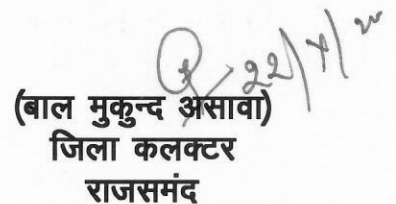 22/
(बाल मुकुन्द असावा)
जिला कलक्टर
राजसमंद